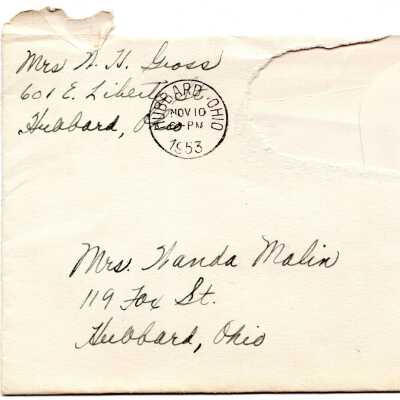 Mrs N. H. Gross
601 E. Liberty
Hubbard, Ohio
HUBBARD, OHIO
NOV 10
PM
1953
Mrs. Wanda Malin
119 Fox St.
Hubbard, Ohio